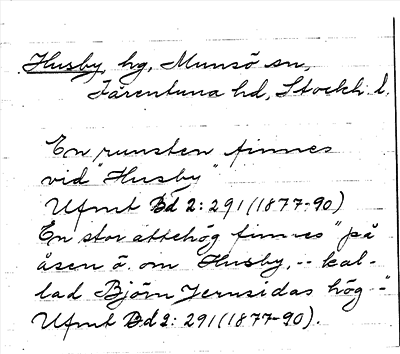 Husby, hg, Munsö sn,
Färentuna hd, Stockh. l.
En runsten finnes
vid "Husby"
Ufmt Bd 2: 291 (1877-90)
En stor ättehög finnes "på
åsen ö. om Husby, -- kal-
lad Björn Jernsidas hög -"
Ufmt Bd 2: 291 (1877-90).